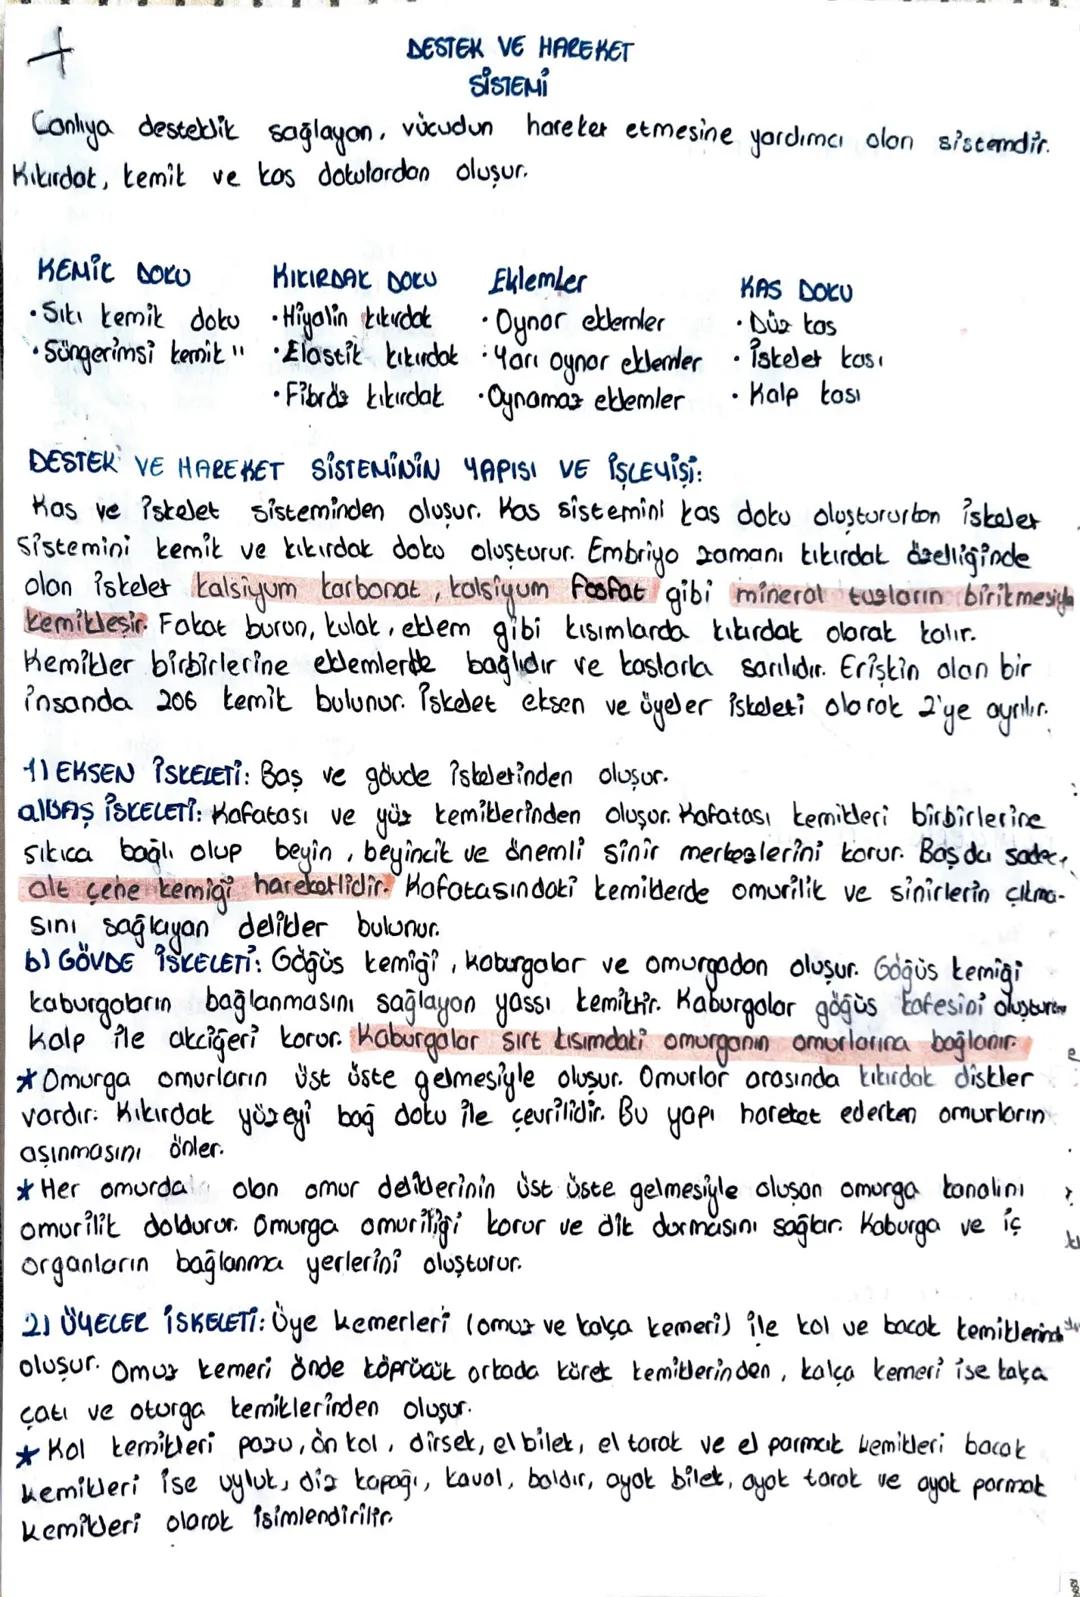 DESTEK VE HAREKET
SİSTEMİ
Canlıya desteklik sağlayan, vücudun hareket etmesine yardımcı olan sistemdir.
Kıkırdak, kemik ve kas dokulardan oluşur.
KEMİK DOKU
• Sıkı kemik doku
• Süngerimsi kemik "
KIKIRDAK DOKU
• Hiyalin kıkırdak
• Elastik kıkırdak
• Fibröz kıkırdak
Eklemler
• Oynar eklemler
• Yarı oynar eklemler
• Oynamaz eklemler
KAS DOKU
• Düz kas
• İskelet kası
• Kalp kası
DESTEK VE HAREKET SİSTEMİNİN YAPISI VE İŞLEYİŞİ:
Kas ve iskelet sisteminden oluşur. Kas sistemini kas doku oluştururken iskelet
sistemini kemik ve kıkırdak doku oluşturur. Embriyo zamanı kıkırdak özelliğinde
olan iskelet kalsiyum karbonat, kalsiyum fosfat gibi mineral tuzların birikmesiyle
kemikleşir. Fakat burun, kulak, eklem gibi kısımlarda kıkırdak olarak kalır.
Kemikler birbirlerine eklemlerle bağlıdır ve kaslarla sarılıdır. Erişkin olan bir
insanda 206 kemik bulunur. İskelet eksen ve üyeler iskeleti olarak 2'ye ayrılır.
1) EKSEN İSKELETİ: Baş ve gövde iskeletinden oluşur.
a) BAŞ İSKELETİ: Kafatası ve yüz kemiklerinden oluşur. Kafatası kemikleri birbirlerine
sıkıca bağlı olup beyin, beyincik ve önemli sinir merkezlerini korur. Başda sadece
alt çene kemiği hareketlidir. Kafatasındaki kemiklerde omurilik ve sinirlerin çıkma-
sını sağlayan delikler bulunur.
b) GÖVDE İSKELETİ: Göğüs kemiği, kaburgalar ve omurgadan oluşur. Göğüs kemiği
kaburgaların bağlanmasını sağlayan yassı kemiktir. Kaburgalar göğüs kafesini oluşturur
kalp ile akciğeri korur. Kaburgalar sırt kısımdaki omurganın omurlarına bağlanır.
* Omurga omurların üst üste gelmesiyle oluşur. Omurlar arasında kıkırdak diskler
vardır. Kıkırdak yüzeyi bağ doku ile çevrilidir. Bu yapı hareket ederken omurların
aşınmasını önler.
* Her omurda olan omur deliklerinin üst üste gelmesiyle oluşan omurga kanalını
omurilik doldurur. Omurga omuriliği korur ve dik durmasını sağlar. Kaburga ve iç
organların bağlanma yerlerini oluşturur.
2) ÜYELER İSKELETİ: Üye kemerleri (omuz ve kalça kemeri) ile kol ve bacak kemiklerinden
oluşur. Omuz kemeri önde köprücük ortada kürek kemiklerinden, kalça kemeri ise kalça
çatı ve oturga kemiklerinden oluşur.
* Kol kemikleri pazu, ön kol, dirsek, el bilek, el tarak ve el parmak kemikleri bacak
kemikleri ise uyluk, diz kapağı, kaval, baldır, ayak bilek, ayak tarak ve ayak parmak
kemikleri olarak isimlendirilir.